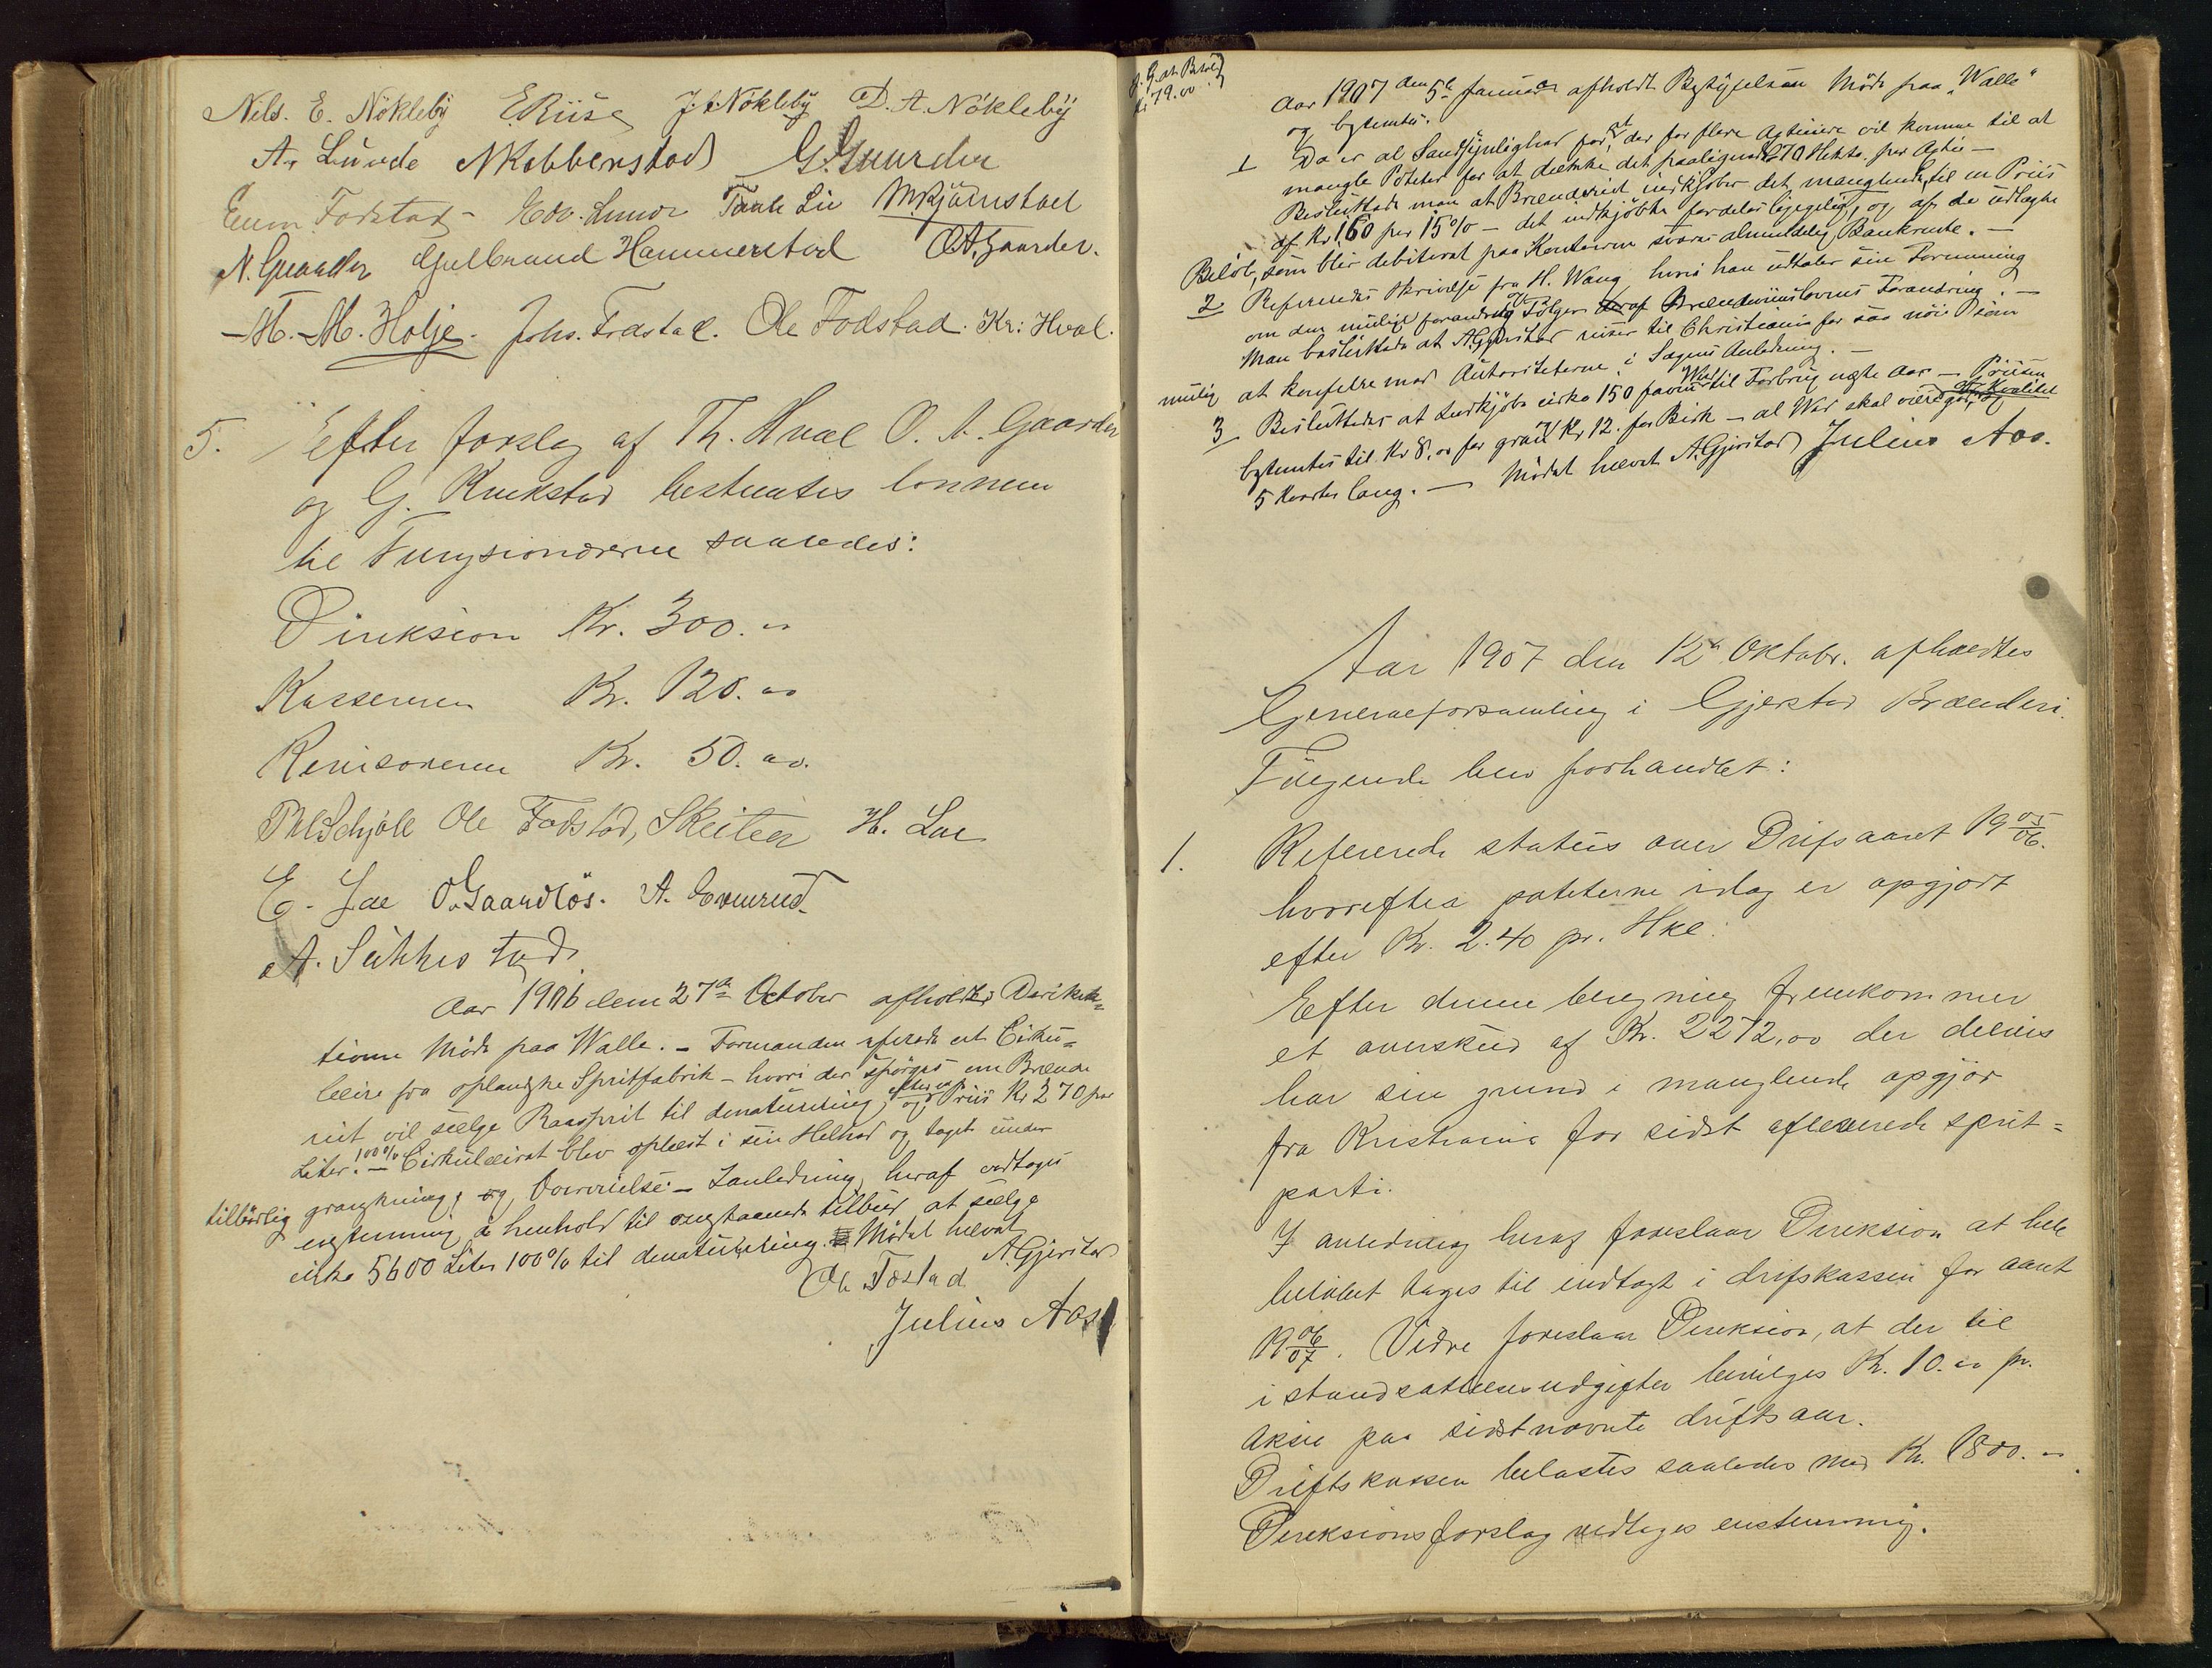 Nils. E. Nökleby E. Riise J. A. Nökleby D. A. Nökleby
A. Lunde N Kobbenstad G. Gaarder
Even Fodstad - Edv. Lunde Paul Lie M. Kjörnstad
N. Gaarder Gulbrand Hammerstad O. A. Gaarder.
M. M. Holje. Johs. Fodstad. Ole Fodstad. Kr: Hval.
5. Efter forslag af Th. Hval O. A. Gaarder
og G. Kruckstad bestemtes lønnen
til Funksionærerne saaledes:
Direksion Kr. 300.00
Kassereren Kr. 120.00
Revisoreren Kr. 50.00.
Ole Fodstad, H. Loe
E. Loe O. Gaardløs. A. Evenrud.
A.
Aar 1906 den 27de October afholdtes Direk-
tionen Möde paa Walle. - Formanden refererte et Cirku-
lære fra oplandske Spritfabrik - hvori der spörges om Brænde
riet vil sælge Raasprit til denaturering, efter en Priis Kr 270 per
Liter. 100% - Cirkulæiret blev oplæst i sin Helhed og taget under
tilbörlig granskning, og Overveielse - I anledning heraf vedtoges
enstemmig i henhold til omstaaende tilbud at sælge
cirka 5600 Liter 100% til denaturering. Mödet hævet
Ole Fostad A. Gjerstad
Julius Aas
Aar 1907 den 5te Januar afholdt Bestyrelsen Möde paa "Walle"
og bestemtes.
1 Da er al Sandsynlighed for, at der for flere Aktiere vil komme til at
mangle Poteter for at dække det paalignede 70 Hekto. per Aktie -
Besluttede man at Brænderiet indkjöber det manglende til en Priis
af Kr 1,60 per 15% - det indkjöbte fordeles ligegelig, og af de udlagte
Belöb, som blir debiteret paa Kontoerne svares almindelig Bankrente. -
2 Refereredes Skrivelse fra H. Wang hvori han udtaler sin Formening
om den mulige forandring og Fölger af Brændeviinslovens Forandring. -
Man besluttede at A. Gjerstad reiser til Christiania for saa nöie som
mulig at konferere med Autoriteterne i Sagens Anledning. -
3 Besluttedes at Indkjöbe cirka 150 favne Wed til Forbrug næste Aar - Priisen
bestemtes til Kr 8.00 for gran og Kr 12. for Birk - al Wed skal være god Kvalitet
5 Kvarter lang. - Mödet hævet A. Gjerstad Julius Aas.
Aar 1907 den 12te Oktobr. afholdtes
Generalforsamling i Gjerstad Brænderi.
Følgende blev forhandlet:
1. Referede status over Drifsaaret 19 05/06.
hvorefter poteterne idag er opgjort
efter Kr. 2.40 pr. Hkl.
Efter denne beregning fremkommer
et overskud af Kr. 2272,00 der delvis
har sin grund i manglende opgjør
fra Kristiania for sidst afleverede sprit-
parti.
I anledning heraf foreslaar Direksion at hele
beløbet tages til indtægt i drifskassen for aaret
19 06/07. Vidre foreslaar Direksion, at der til
istandsættelsesudgifter bevilges Kr. 10.00 pr.
Aksie paa sidstnævnte driftsaar.
Driftskassen belastes saaledes med Kr. 1800.00
Direksionsforslag vedtages enstemmig.